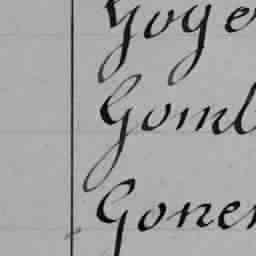 Goge
Goml
Gonen